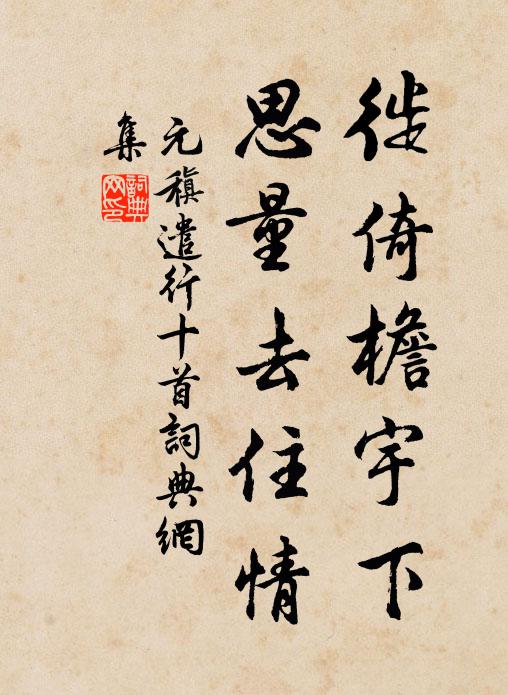 徙倚檐宇下
思量去住情
元稹遣行十首詞典網
集
詞典網印